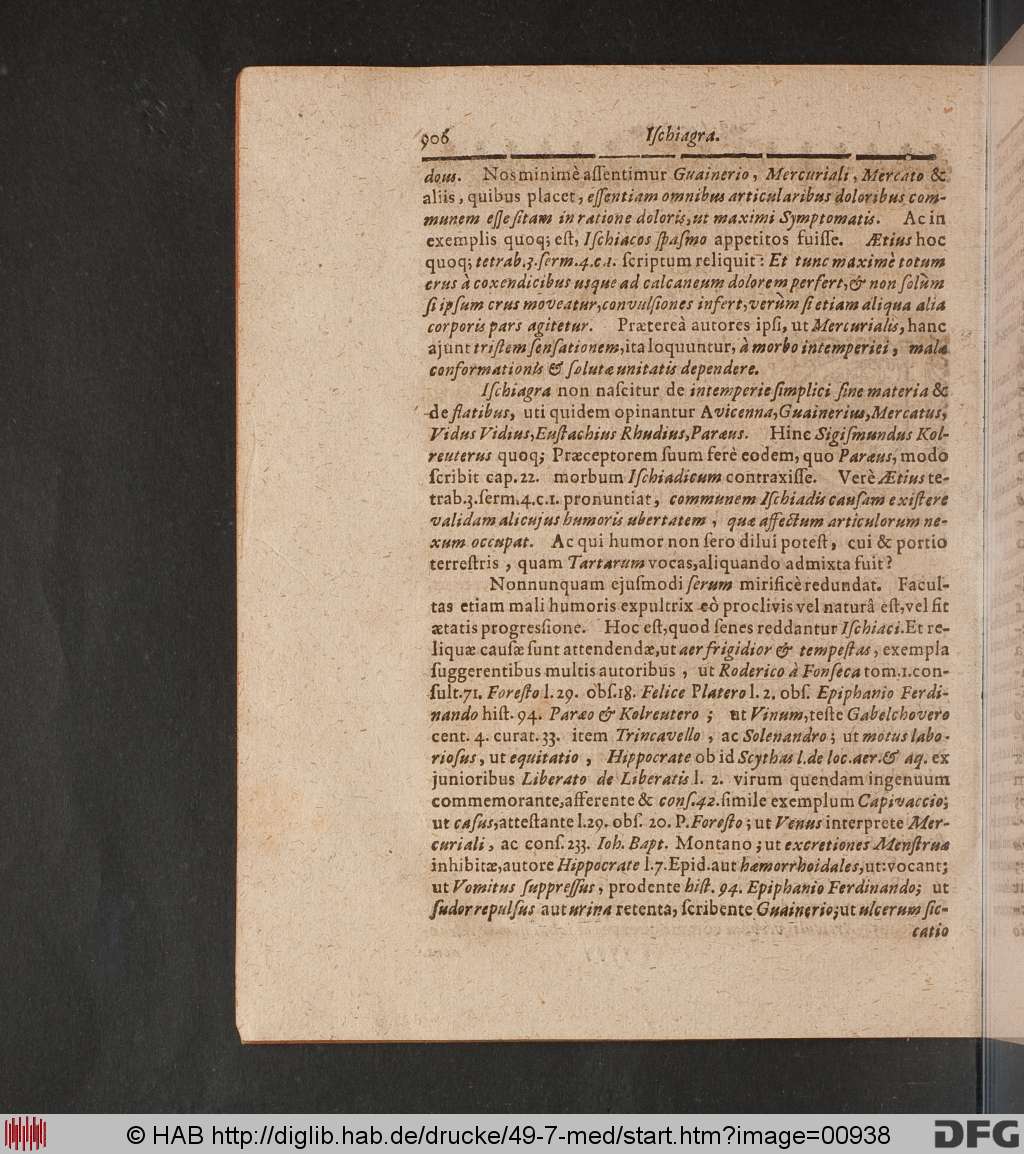 906 Iſchiagra.
dous. Nos minimè aſſentimur Guainerio, Mercuriali, Mercato &
aliis, quibus placet, eſſentiam omnibus articularibus doloribus com-
munem eſſe ſitam in ratione doloris, ut maximi Symptomatis. Ac in
exemplis quoq; eſt, Iſchiacos ſpaſmo appetitos fuiſſe. Ætius hoc
quoq; tetrab.3.ſerm.4.c.1. ſcriptum reliquit: Et tunc maximè totum
crus à coxendicibus usque ad calcaneum dolorem perfert, & non ſolùm
ſi ipſum crus moveatur, convulſiones infert, verùm ſi etiam aliqua alia
corporis pars agitetur. Prætereà autores ipſi, ut Mercurialis, hanc
ajunt triſtem ſenſationem, ita loquuntur, à morbo intemperiei, malæ
conformationis & ſolutæ unitatis dependere.
Iſchiagra non naſcitur de intemperie ſimplici ſine materia &
de flatibus, uti quidem opinantur Avicenna, Guainerius, Mercatus,
Vidus Vidius, Euſtachius Rhudius, Paræus. Hinc Sigiſmundus Kol-
reuterus quoq; Præceptorem ſuum ferè eodem, quo Paræus, modo
ſcribit cap. 22. morbum Iſchiadicum contraxiſſe. Verè Ætius te-
trab.3.ſerm.4.c.1. pronuntiat, communem Iſchiadis cauſam exiſtere
validam alicujus humoris ubertatem, quæ affectum articulorum ne-
xum occupat. Ac qui humor non ſero dilui poteſt, cui & portio
terreſtris, quam Tartarum vocas, aliquando admixta fuit?
Nonnunquam ejuſmodi ſerum mirificè redundat. Facul-
tas etiam mali humoris expultrix eò proclivis vel naturâ eſt, vel fit
ætatis progreſſione. Hoc eſt, quod ſenes reddantur Iſchiaci. Et re-
liquæ cauſæ ſunt attendendæ, ut aer frigidior & tempeſtas, exempla
ſuggerentibus multis autoribus, ut Roderico à Fonſeca tom.1.con-
ſult.71. Foreſto l. 29. obſ.18. Felice Platero l. 2. obſ. Epiphanio Ferdi-
nando hiſt. 94. Paræo & Kolreutero; ut Vinum, teſte Gabelchovero
cent. 4. curat. 33. item Trincavello, ac Solenandro; ut motus labo-
rioſus, ut equitatio, Hippocrate ob id Scythas l. de loc. aer. & aq. ex
junioribus Liberato de Liberatis l. 2. virum quendam ingenuum
commemorante, afferente & conſ. 42. ſimile exemplum Capivaccio;
ut caſus, atteſtante l.29. obſ. 20. P. Foreſto; ut Venus interprete Mer-
curiali, ac conſ. 233. Ioh. Bapt. Montano; ut excretiones Menſtruæ
inhibitæ, autore Hippocrate l.7.Epid. aut hæmorrhoidales, ut vocant;
ut Vomitus ſuppreſſus, prodente hiſt. 94. Epiphanio Ferdinando; ut
ſudor repulſus aut urina retenta, ſcribente Guainerio; ut ulcerum ſic-
catio
© HAB http://diglib.hab.de/drucke/49-7-med/start.htm?image=00938
DFG